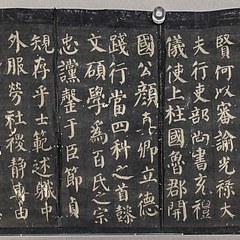 賢何以審諭光祿大
夫行吏部尚書充禮
儀使上柱國魯郡開
國公顏真卿立德
踐行當四科之首懿
文碩學為百氏之宗
忠讜罄于臣節貞
規存乎士範述職中
外服勞社稷靜專由